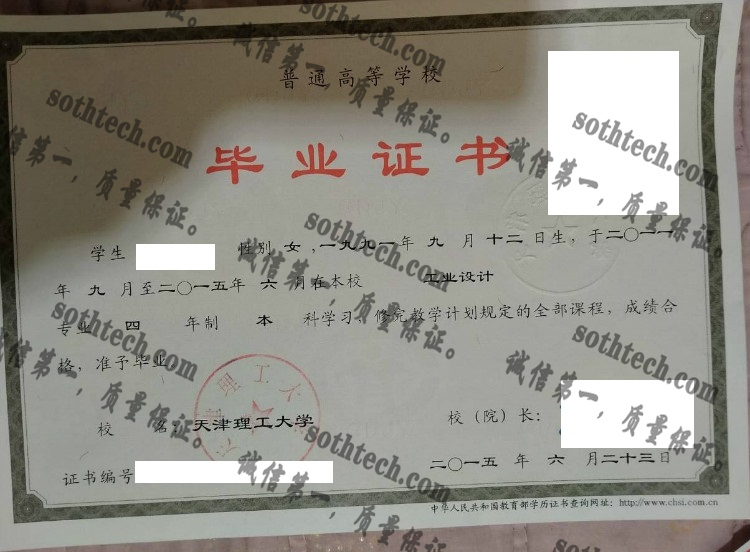 普通高等学校
毕业证书
学生 性别 女 ,一九九一年 九 月 十二 日生, 于二〇一一
年 九 月至二〇一五年 六 月在本校 工业设计
专业 四 年制 本 科学习, 修完教学计划规定的全部课程, 成绩合
格, 准予毕业
校 名: 天津理工大学
校(院)长:
证书编号
二〇一五 年 六 月二十三日
中华人民共和国教育部学历证书查询网址: http://www.chsi.com.cn
天津理工大学
sothtech.com
诚信第一,质量保证。
sothtech.com
诚信第一,质量保证。
sothtech.com
诚信第一,质量保证。
sothtech.com
诚信第一,质量保证。
sothtech.com
诚信第一,质量保证。
sothtech.com
诚信第一,质量保证。
sothtech.com
诚信第一,质量保证。